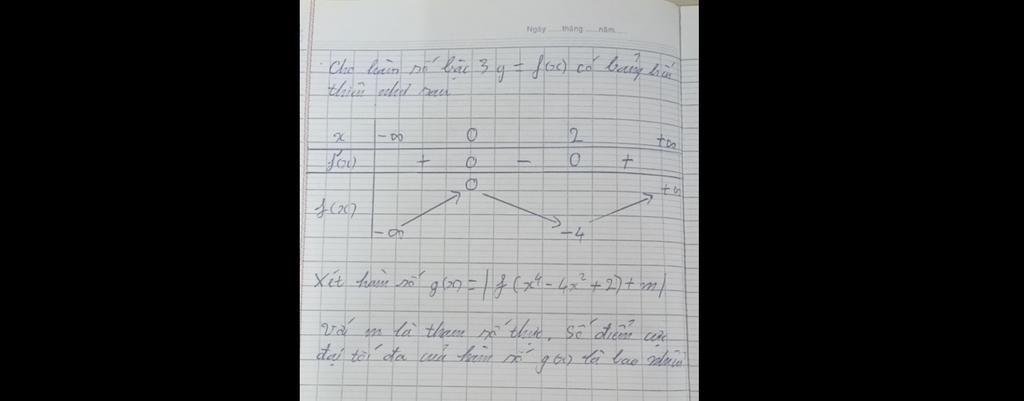 Ngày.....tháng.....năm.....
Cho hàm số bậc 3 y = f(x) có bảng biến
thiên như sau
x -∞ 0 2 +∞
f'(x) + 0 - 0 +
0 +∞
f(x)
-∞ -4
Xét hàm số g(x) = | f (x⁴ - 4x² + 2) + m |
với m là tham số thực. Số điểm cực
đại tối đa của hàm số g(x) là bao nhiêu